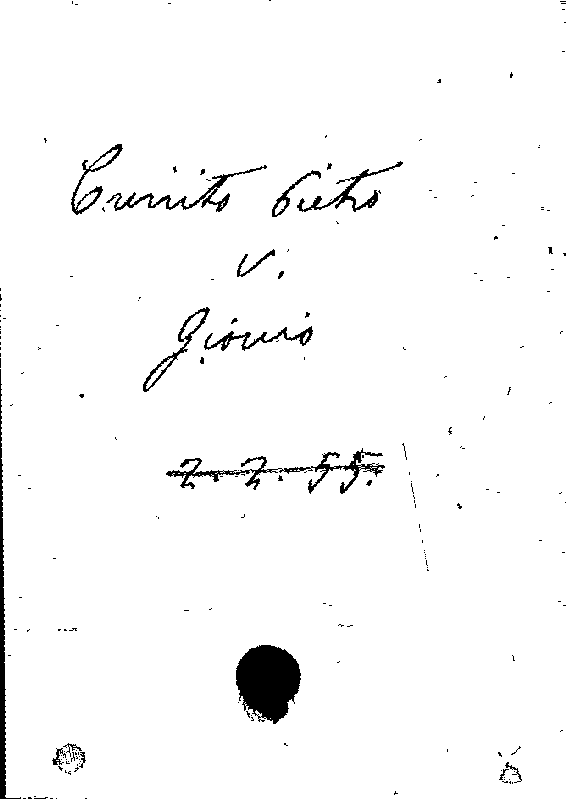 Crinito Pietro
v.
Giovio
2. 2. 55.